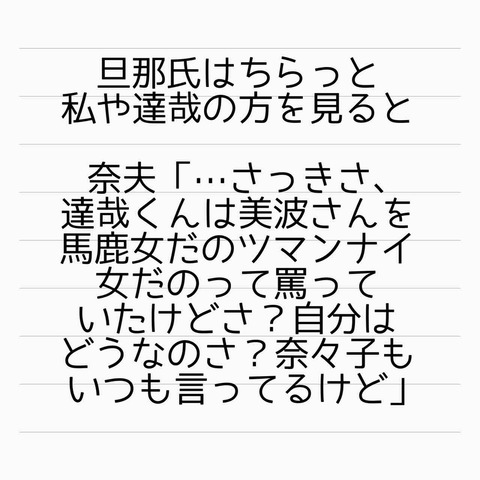 旦那氏はちらっと
私や達哉の方を見ると
奈夫「…さっきさ、
達哉くんは美波さんを
馬鹿女だのツマンナイ
女だのって罵って
いたけどさ？自分は
どうなのさ？奈々子も
いつも言ってるけど」